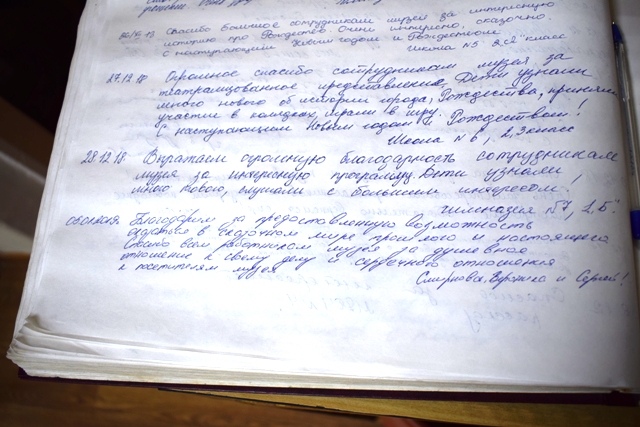 Спасибо большое сотрудникам музея за интересную
историю про Рождество. Очень интересно, сказочно.
С наступающим Новым годом и Рождеством
школа №5 2 класс
27.12.18 Огромное спасибо сотрудникам музея за
театрализованное представление. Дети узнали
много нового об истории города, Рождества, приняли
участие в колядках, играли в игру.
С наступающим Новым годом и Рождеством!
Школа №6, 2,3 класс
28.12.18 Выражаем огромную благодарность сотрудникам
музея за интересную программу. Дети узнали
много нового, слушали с большим интересом!
гимназия №7, 2 "Б"
Благодарим за предоставленную возможность
оказаться в сказочном мире прошлого и настоящего
Спасибо всем работникам музея за душевное
отношение к своему делу и сердечного отношения
к посетителям музея
Смирнова, и Сергей!